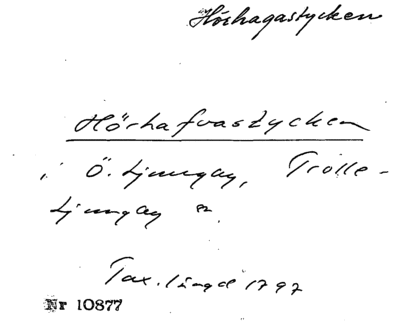 Hörhagastycken
Hörhafvastycken
i Ö. Ljungby, Trolle-
Ljungby sn.
Tax. längd 1797
Nr 10877